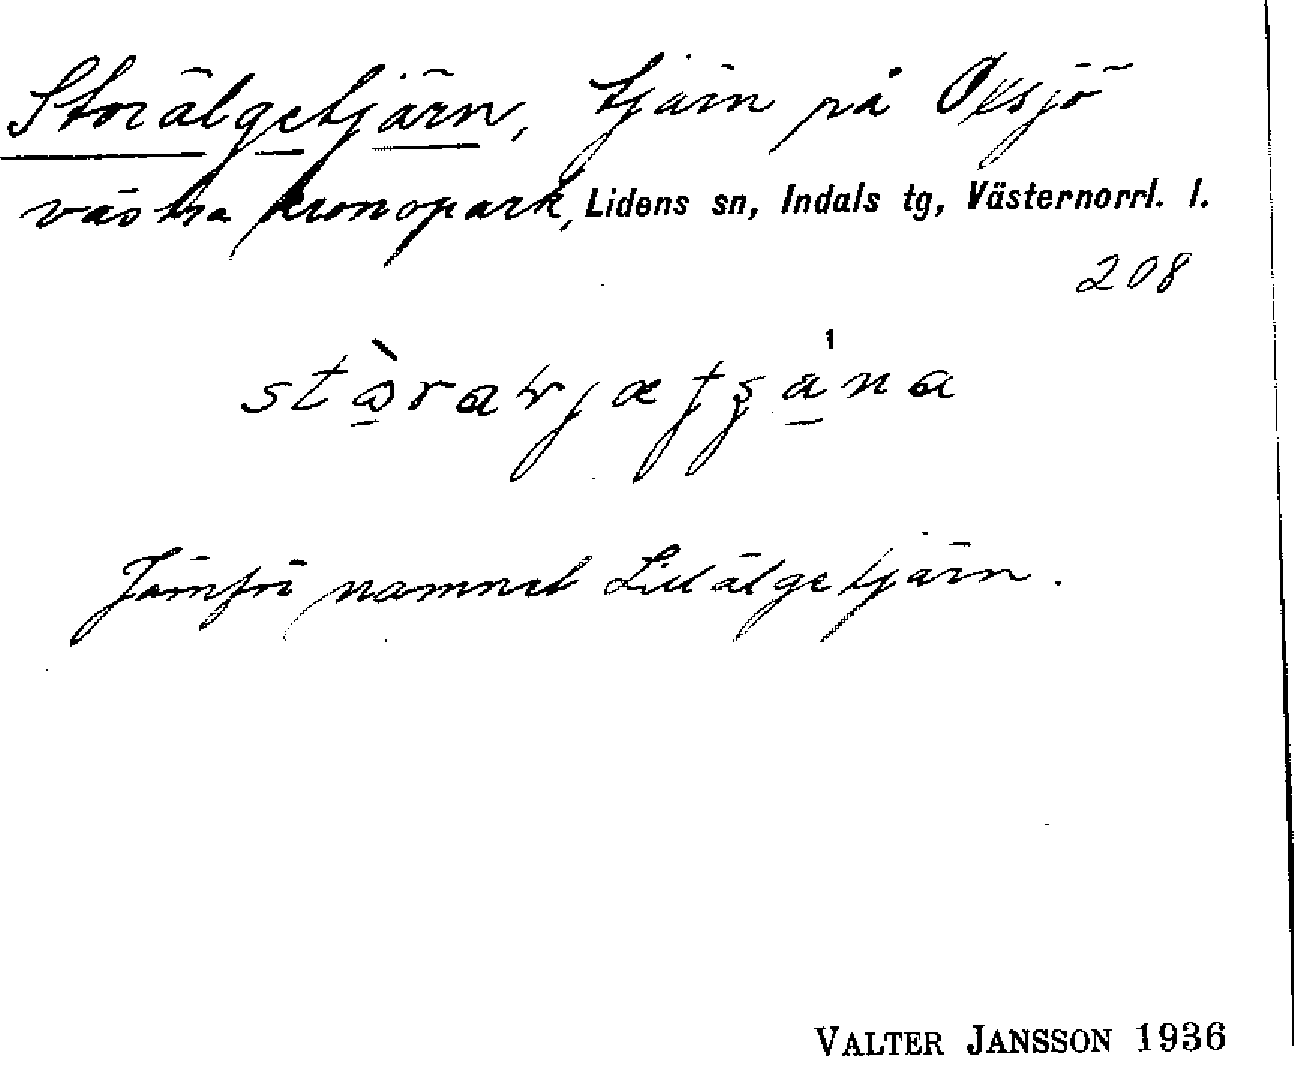 Storälgetjärn, tjärn på Oxsjö
västra kronopark, Lidens sn, Indals tg, Västernorrl. l.
208
Jämför namnet Lillälgetjärn.
VALTER JANSSON 1936